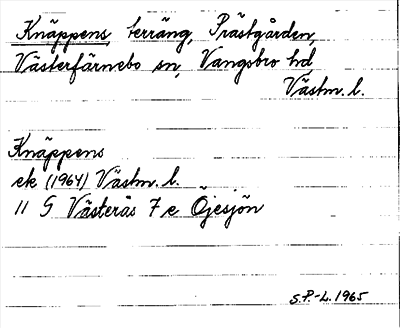 Knäppens, terräng, Prästgården,
Västerfärnebo sn, Vangsbro hd
Västm. l.
Knäppens
ek (1964) Västm. l.
11 G Västerås 7 e Öjesjön
S.P.-L. 1965